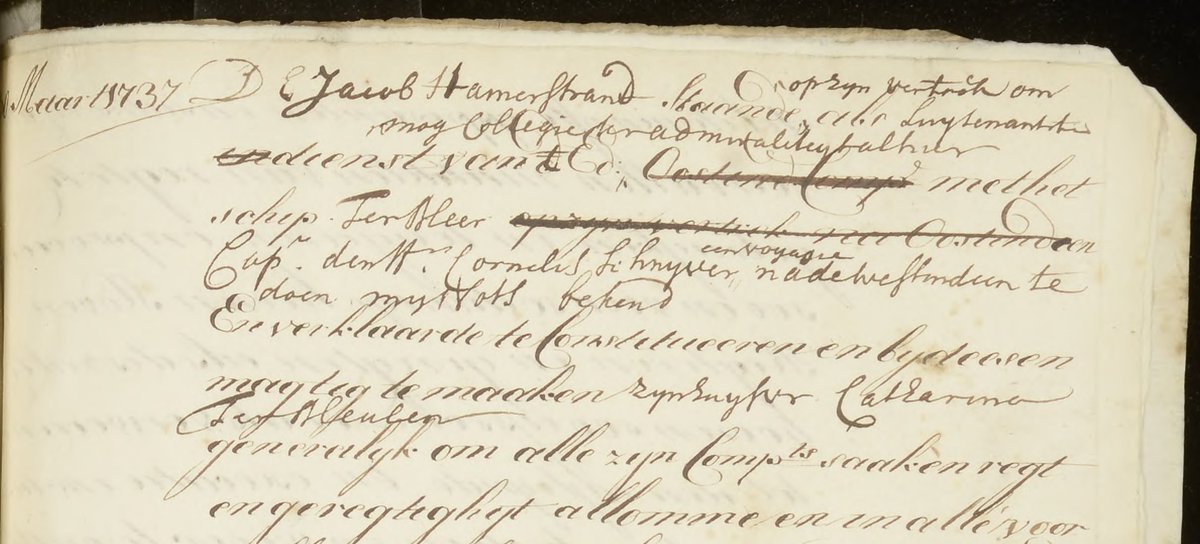 Maart 1737 D E Jacob Hamerstrand staande op zyn vertrek om
als Luytenant te
mog Collegie der admiraliteyt alhier
in dienst van d Ed: Oostind Comp met het
schip Ter Meer op zyn vertrek na Oostindien
Capn. den Hr. Cornelis Schryver een voyagie na de westindien te
doen my Nots bekend
En verklaarde te Constitueeren en by deesen
magtig te maaken zyn huysvr Catharina
Ter Meulen
generalyk om alle zyn Compts saaken regt
en geregtigheyt allomme en in alle voor